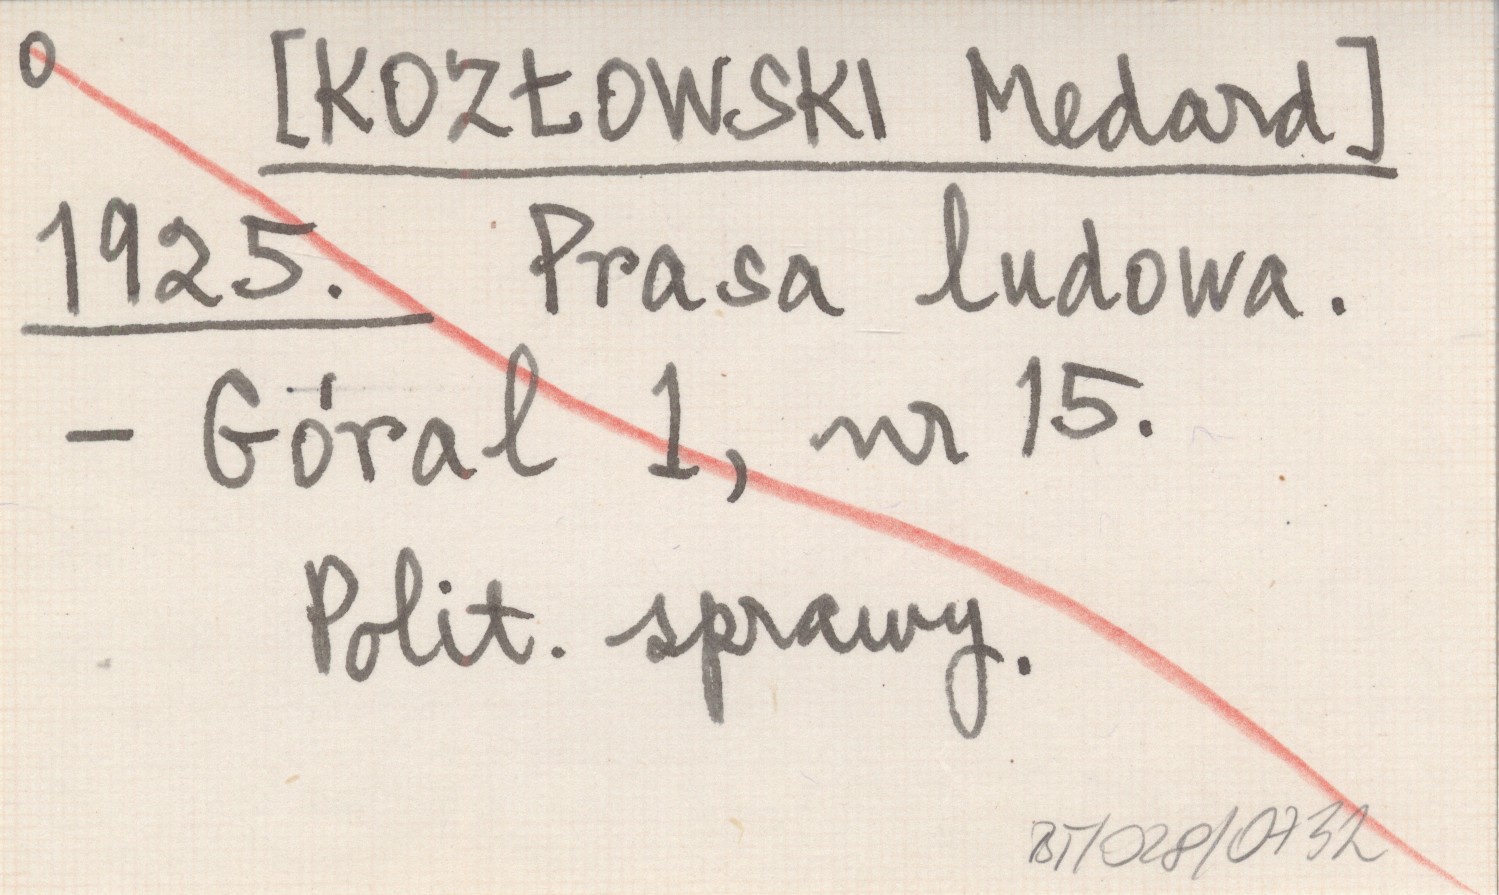 o [KOZŁOWSKI Medard]
1925. Prasa ludowa.
- Góral 1, nr 15.
Polit. sprawy.
BT/028/0732